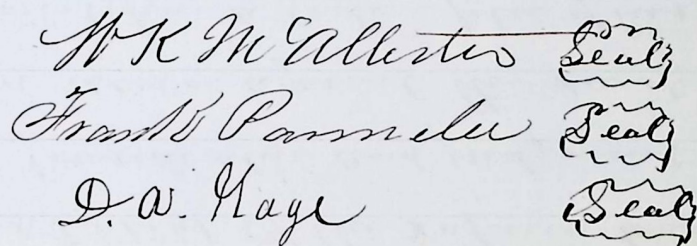 W K McAllister Seal
Frank Parmelee Seal
D. A. Gage Seal